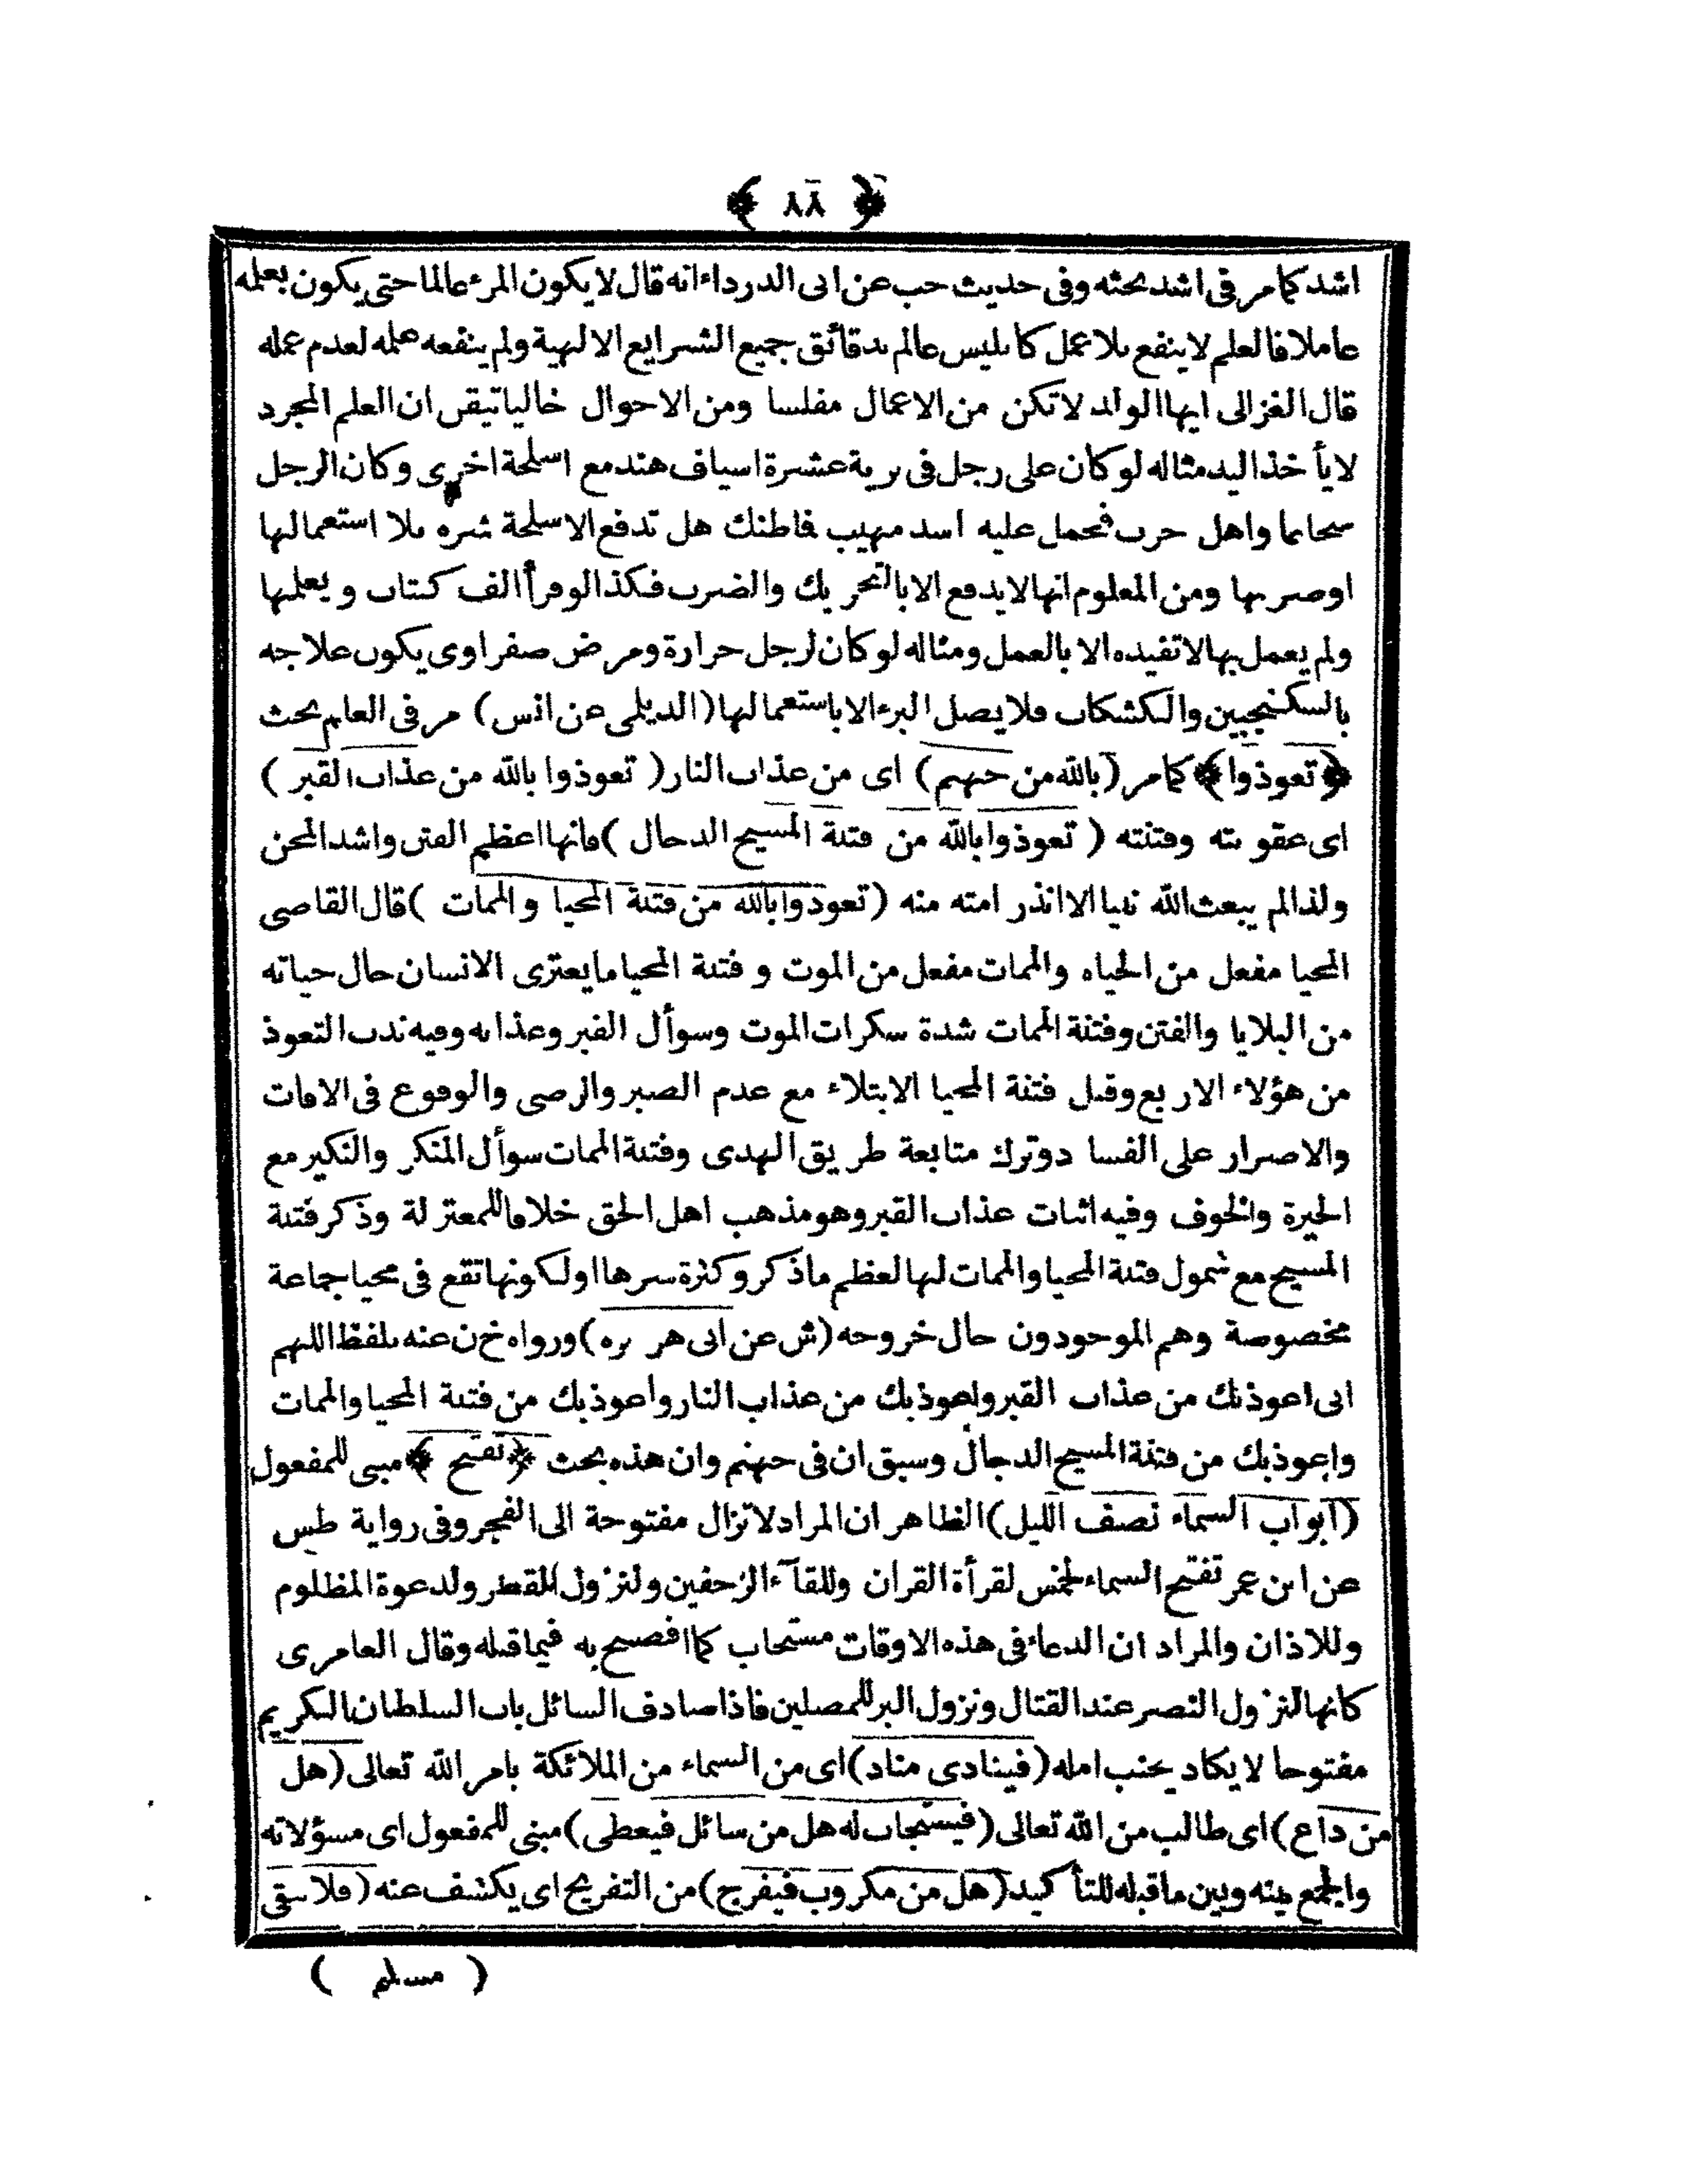 ﴿ ٨٨ ﴾
اشد كما مر فى اشد بحثه وفى حديث حب عن ابى الدرداء انه قال لا يكون المرء عالما حتى يكون بعلمه
عاملا فالعلم لا ينفع بلا عمل كابليس عالم بدقائق جميع الشرايع الالهية ولم ينفعه علمه لعدم عمله
قال الغزالى ايها الولد لا تكن من الاعمال مفلسا ومن الاحوال خاليا تيقن ان العلم المجرد
لا يأ خذ اليد مثاله لو كان على رجل فى برية عشرة اسياف هند مع اسلحة اخرى وكان الرجل
شجاعا واهل حرب فحمل عليه اسد مهيب فاظنك هل تدفع الاسلحة شره بلا استعمالها
او ضربها ومن المعلوم انها لا يدفع الا بالتحريك والضرب فكذا لو قرأ الف كتاب ويعلمها
ولم يعمل بها لا تفيده الا بالعمل ومثاله لو كان لرجل حرارة ومرض صفراوى يكون علاجه
بالسكنجبين والكشكاب فلا يصل البرء الا باستعمالها (الديلمى عن انس) مر فى العلم بحث
﴿ تعوذوا ﴾ كما مر (بالله من جهنم) اى من عذاب النار (تعوذوا بالله من عذاب القبر)
اى عقوبته وفتنته (تعوذوا بالله من فتنة المسيح الدجال) فانها اعظم الفتن واشد المحن
ولذا لم يبعث الله نبيا الا انذر امته منه (تعوذوا بالله من فتنة المحيا والممات) قال القاضى
المحيا مفعل من الحياه والممات مفعل من الموت و فتنة المحيا ما يعترى الانسان حال حياته
من البلايا والفتن وفتنة الممات شدة سكرات الموت وسوأل القبر وعذابه وفيه ندب التعوذ
من هؤلاء الاربع وقيل فتنة المحيا الابتلاء مع عدم الصبر والرضى والوقوع فى الافات
والاصرار على الفسا دوترك متابعة طريق الهدى وفتنة الممات سوأل المنكر والنكير مع
الحيرة والخوف وفيه اثبات عذاب القبر وهو مذهب اهل الحق خلافا للمعتزلة وذكر فتنة
المسيح مع شمول فتنة المحيا والممات لها لعظم ما ذكر وكثرة شرها او لكونها تقع فى محيا جماعة
مخصوصة وهم الموجودون حال خروجه (ش عن ابى هريره) ورواه خ ن عنه بلفظ اللهم
انى اعوذبك من عذاب القبر واعوذبك من عذاب النار واعوذبك من فتنة المحيا والممات
واعوذبك من فتنة المسيح الدجال وسبق ان فى جهنم وان هذه بحث ﴿ تفتح ﴾ مبنى للمفعول
(ابواب السماء نصف الليل) الظاهر ان المراد لا تزال مفتوحة الى الفجر وفى رواية طس
عن ابن عمر تفتح السماء لخمس لقرأة القران وللقآء الزحفين ولنزول القطر ولدعوة المظلوم
وللاذان والمراد ان الدعاء فى هذه الاوقات مستجاب كما افصح به فيما قبله وقال العامرى
كانها لنزول النصر عند القتال ونزول البر للمصلين فاذا صادف السائل باب السلطان الكريم
مفتوحا لا يكاد يخيب امله (فينادى مناد) اى من السماء من الملائكة بامر الله تعالى (هل
من داع) اى طالب من الله تعالى (فيستجاب له هل من سائل فيعطى) مبنى للمفعول اى مسؤلاته
والجمع بينه وبين ماقبله للتأكيد (هل من مكروب فيفرج) من التفريج اى يكشف عنه (فلا يبقى
( مسلم )